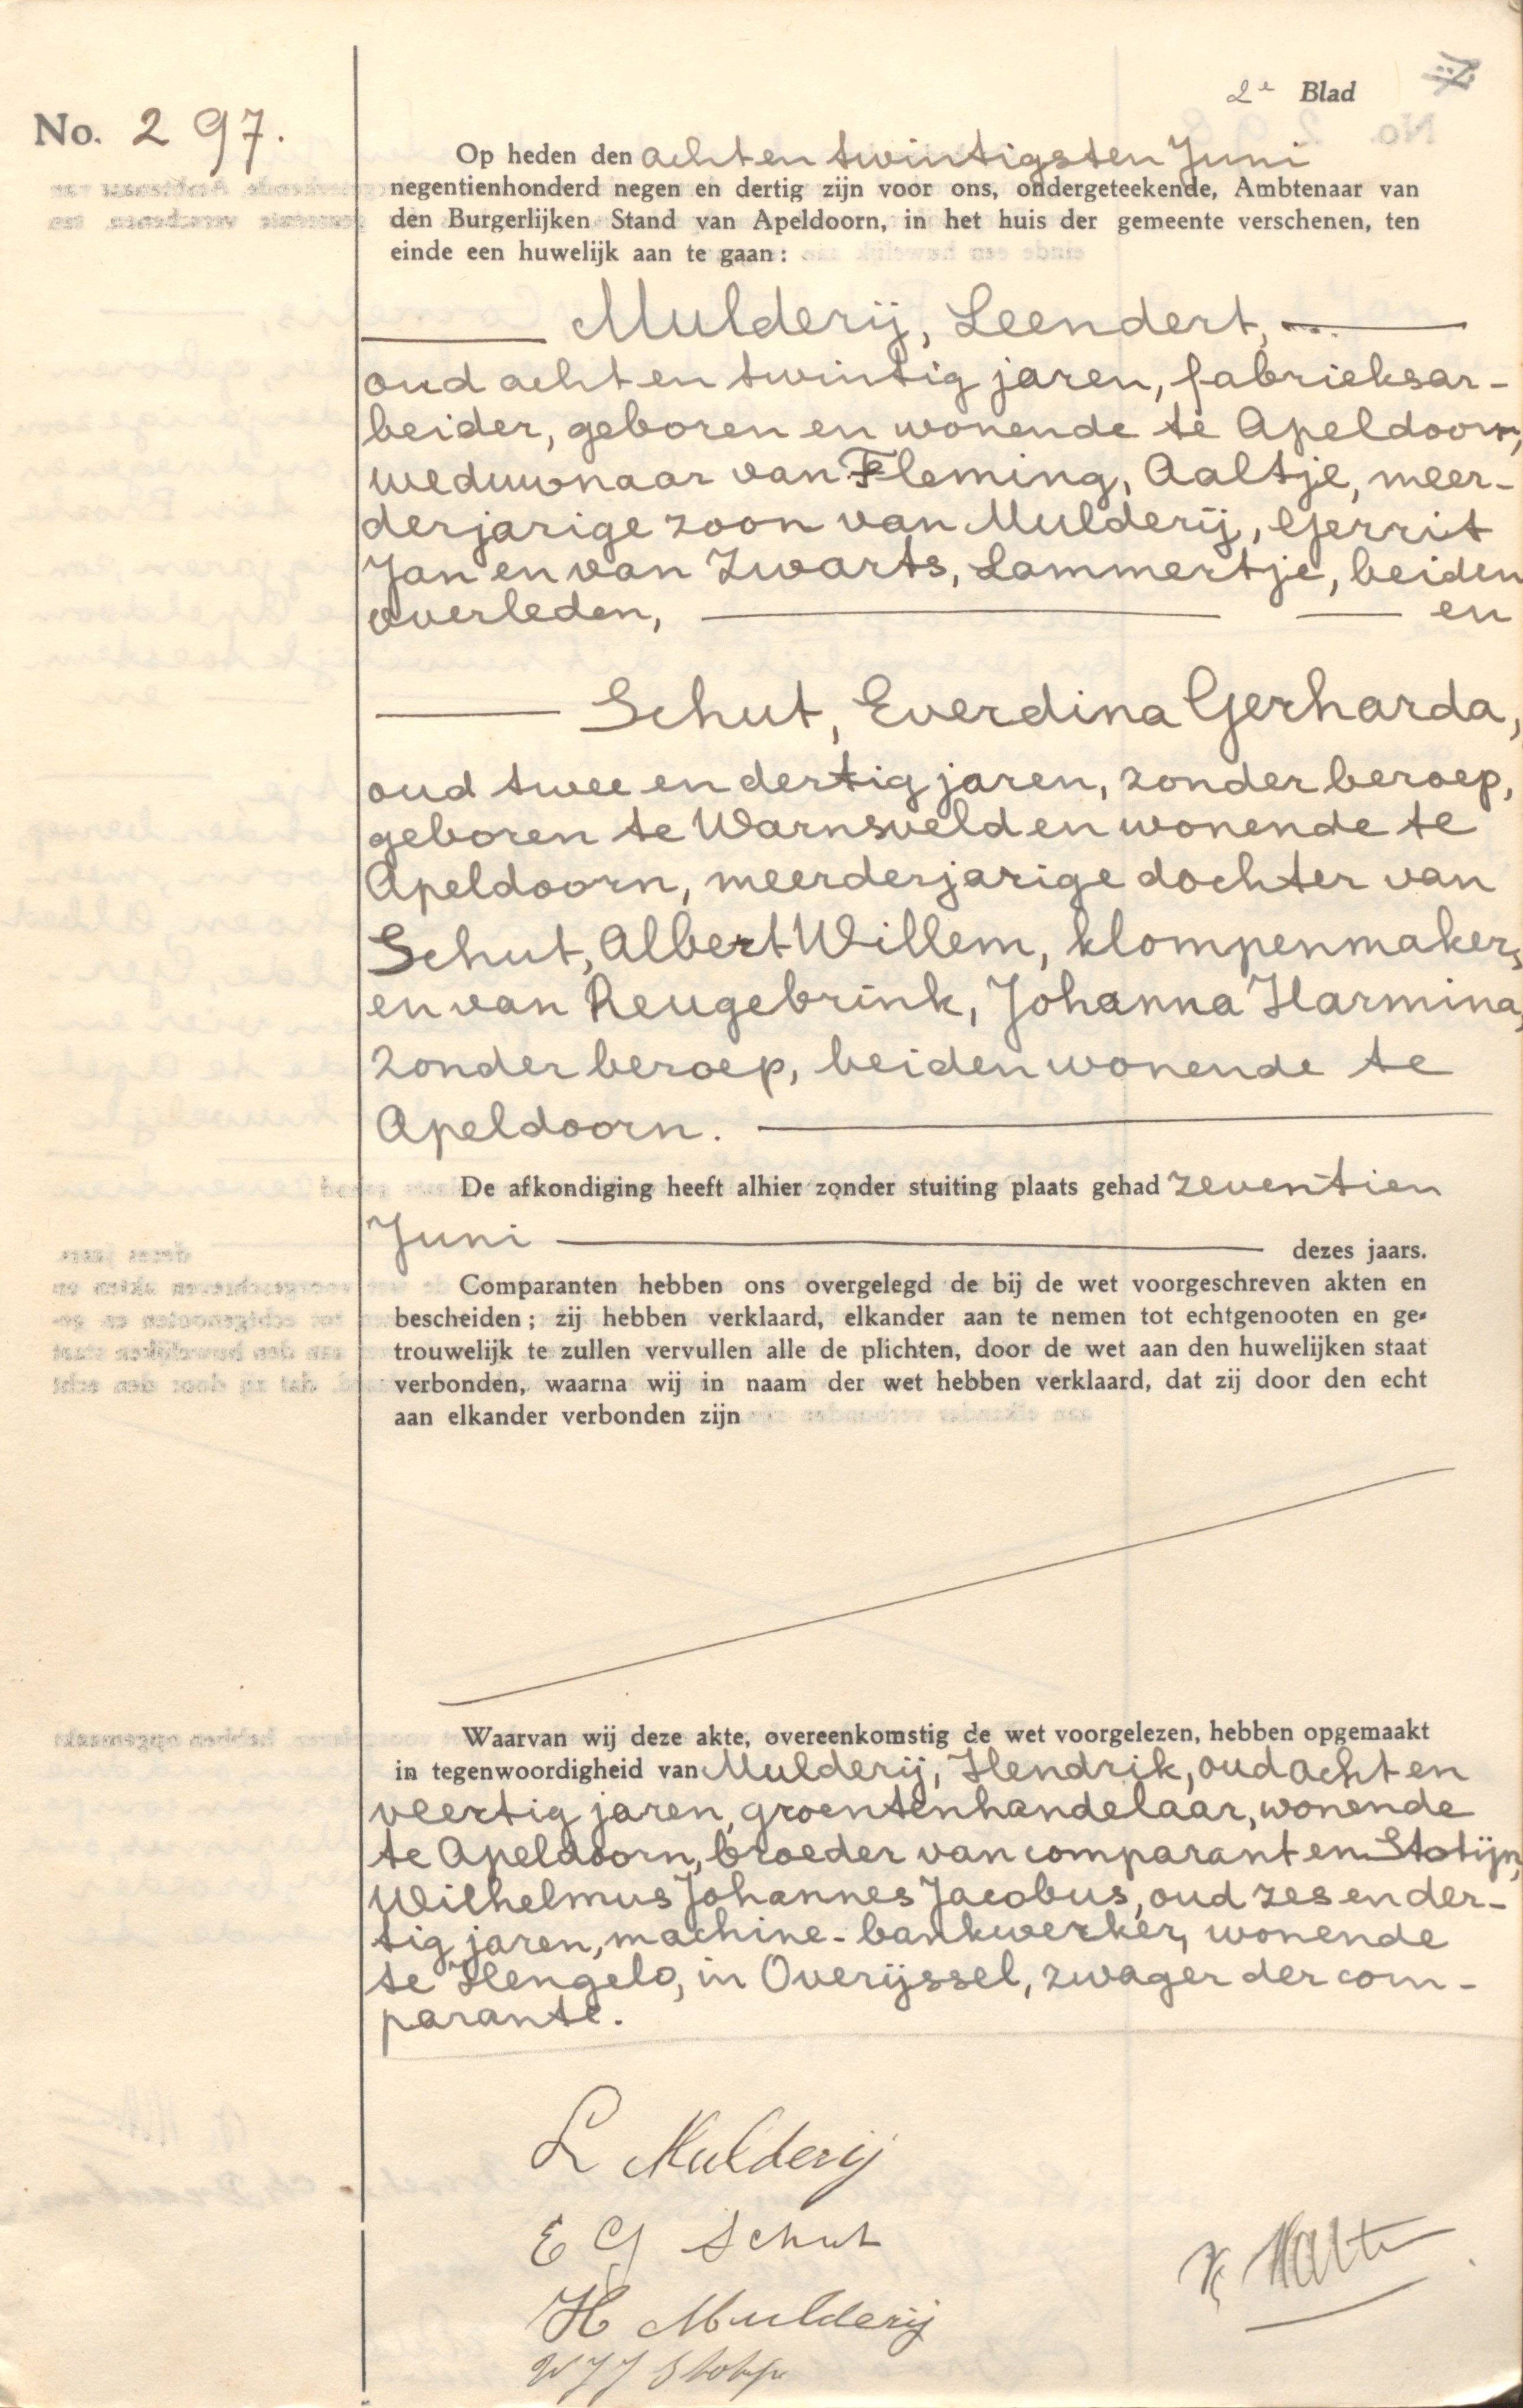 2e Blad
No. 297.
Op heden den achtentwintigsten Juni
negentienhonderd negen en dertig zijn voor ons, ondergeteekende, Ambtenaar van
den Burgerlijken Stand van Apeldoorn, in het huis der gemeente verschenen, ten
einde een huwelijk aan te gaan:
Mulderij, Leendert,
oud acht en twintig jaren, fabrieksar-
beider, geboren en wonende te Apeldoorn,
weduwnaar van Fleming, Aaltje, meer-
derjarige zoon van Mulderij, Gerrit
Jan en van Zwarts, Lammertje, beiden
overleden, en
Schut, Everdina Gerharda,
oud twee en dertig jaren, zonder beroep,
geboren te Warnsveld en wonende te
Apeldoorn, meerderjarige dochter van
Schut, Albert Willem, klompenmaker,
en van Reugebrink, Johanna Harmina,
zonder beroep, beiden wonende te
Apeldoorn.
De afkondiging heeft alhier zonder stuiting plaats gehad zeventien
Juni dezes jaars.
Comparanten hebben ons overgelegd de bij de wet voorgeschreven akten en
bescheiden; zij hebben verklaard, elkander aan te nemen tot echtgenooten en ge-
trouwelijk te zullen vervullen alle de plichten, door de wet aan den huwelijken staat
verbonden, waarna wij in naam der wet hebben verklaard, dat zij door den echt
aan elkander verbonden zijn
Waarvan wij deze akte, overeenkomstig de wet voorgelezen, hebben opgemaakt
in tegenwoordigheid van Mulderij, Hendrik, oud acht en
veertig jaren, groentenhandelaar, wonende
te Apeldoorn, broeder van comparant en Stotijn,
Wilhelmus Johannes Jacobus, oud zes en der-
tig jaren, machine-bankwerker, wonende
te Hengelo, in Overijssel, zwager der com-
parante.
L Mulderij
E G Schut
H Mulderij
W J J Stotijn